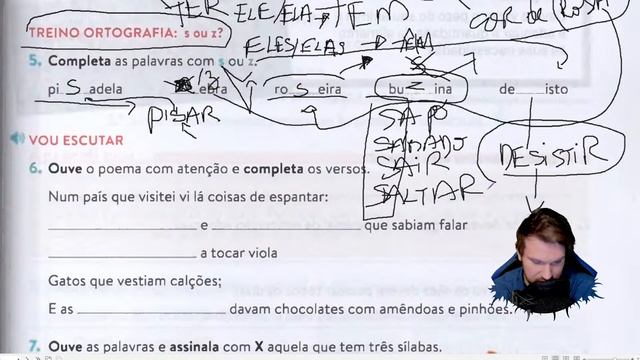 TER ELE/ELA → TEM COR DE ROSA
TREINO ORTOGRAFIA: s ou z?
ELES/ELAS → TÊM
5. Completa as palavras com s ou z.
pi S adela ebra ro S eira bu z ina de isto
PISAR
SAPO
SÁBADO
SAIR
SALTAR
DESISTIR
VOU ESCUTAR
6. Ouve o poema com atenção e completa os versos.
Num país que visitei vi lá coisas de espantar:
e que sabiam falar
a tocar viola
Gatos que vestiam calções;
E as davam chocolates com amêndoas e pinhões.
7. Ouve as palavras e assinala com X aquela que tem três sílabas.